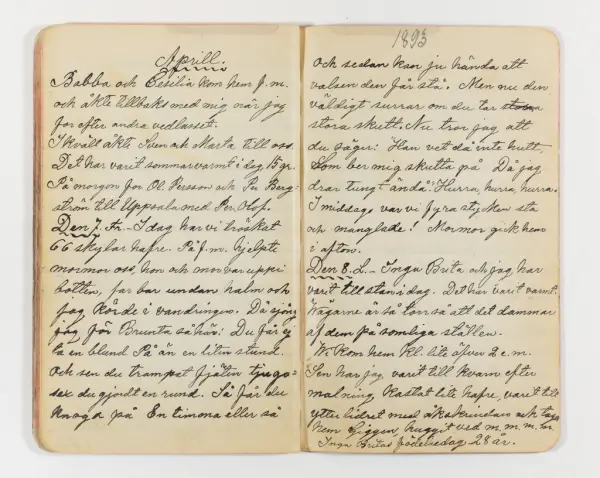 Aprill.
Babba och Cesilia kom hem f.m.
och åkte tillbaks med mig när jag
for efter andra vedlasset.
I kväll åkte Sven och Marta till oss.
Det har varit sommarvarmt i dag 15 gr.
På morgon for Ol. Persson och Pu Berg-
ström till Uppsala med Per Olof.
Den 7. Fr. - I dag har vi tröskat
66 skylar hafre. På f.m. hjelpte
mormor oss, hon och mor var uppi
botten, far bar undan halm och
jag körde i vandringen. Då sjöng
jag för Brunta såhär: Du får ej
ta en blund På än en liten stund.
Och sen du trampat fjäten tjugo-
sex du gjordt en rund. Så får du
knoga på En timma eller så
1893
Och sedan kan ju hända att
valsen den får stå. Men nu den
väldigt surrar om du tar
stora skutt. Nu tror jag att
du säger: Han vet då inte hutt,
Som ber mig skutta på Då jag
drar tungt ändå! Hurra, hurra, hurra.
I middags var vi fyra stycken sta
och manglade! Mormor gick hem
i afton.
Den 8. L. - Inga Brita och jag har
varit till stan i dag. Det har varit varmt.
Vägarne är så torra så att det dammar
af dem på somliga ställen.
Vi kom hem kl. lite öfver 2 e.m.
Sen har jag varit till kvarn efter
malning, kastat lite hafre, varit till
ytterlidret med åkskrindan och
hem huggit ved m.m.m.m.
Inga Britas födelsedag 28 år.